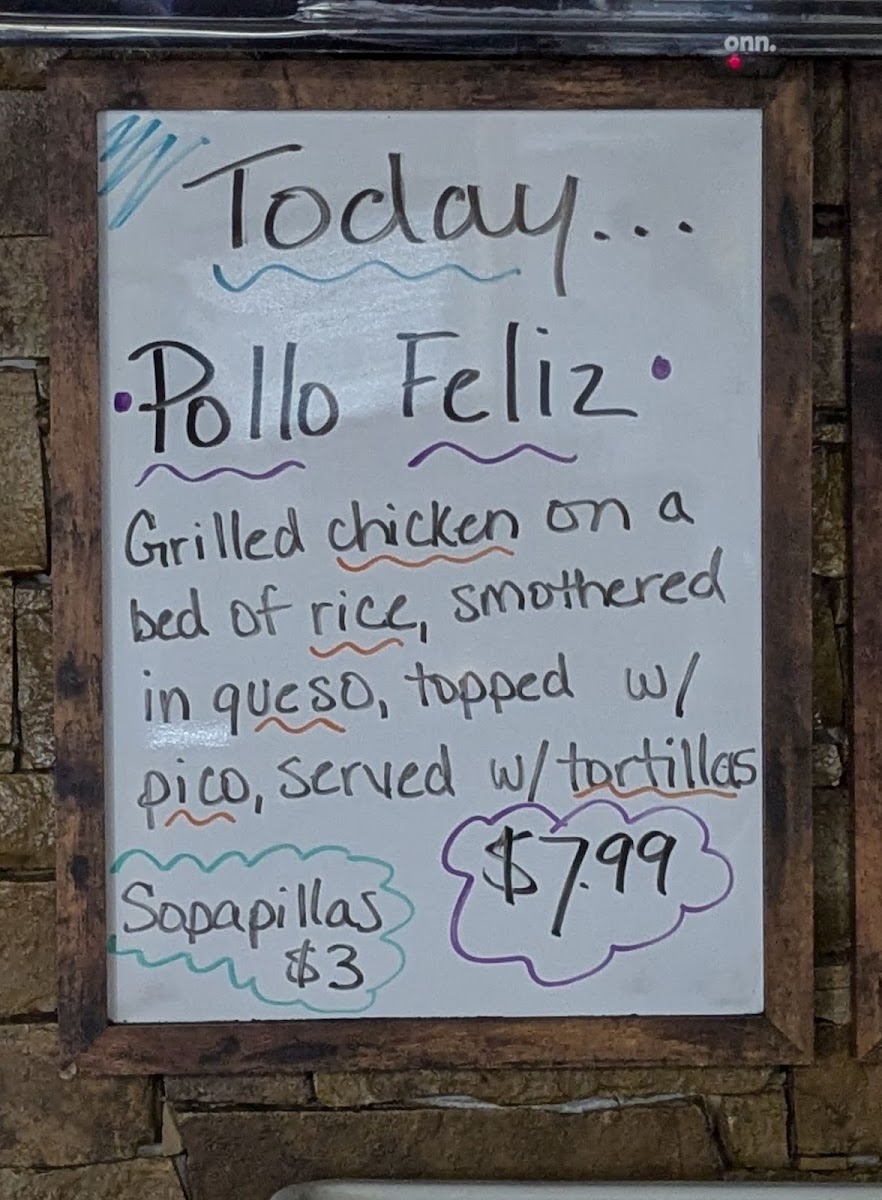 onn.
Today...
Pollo Feliz
Grilled chicken on a
bed of rice, smothered
in queso, topped w/
pico, served w/ tortillas
$7.99
Sopapillas
$3